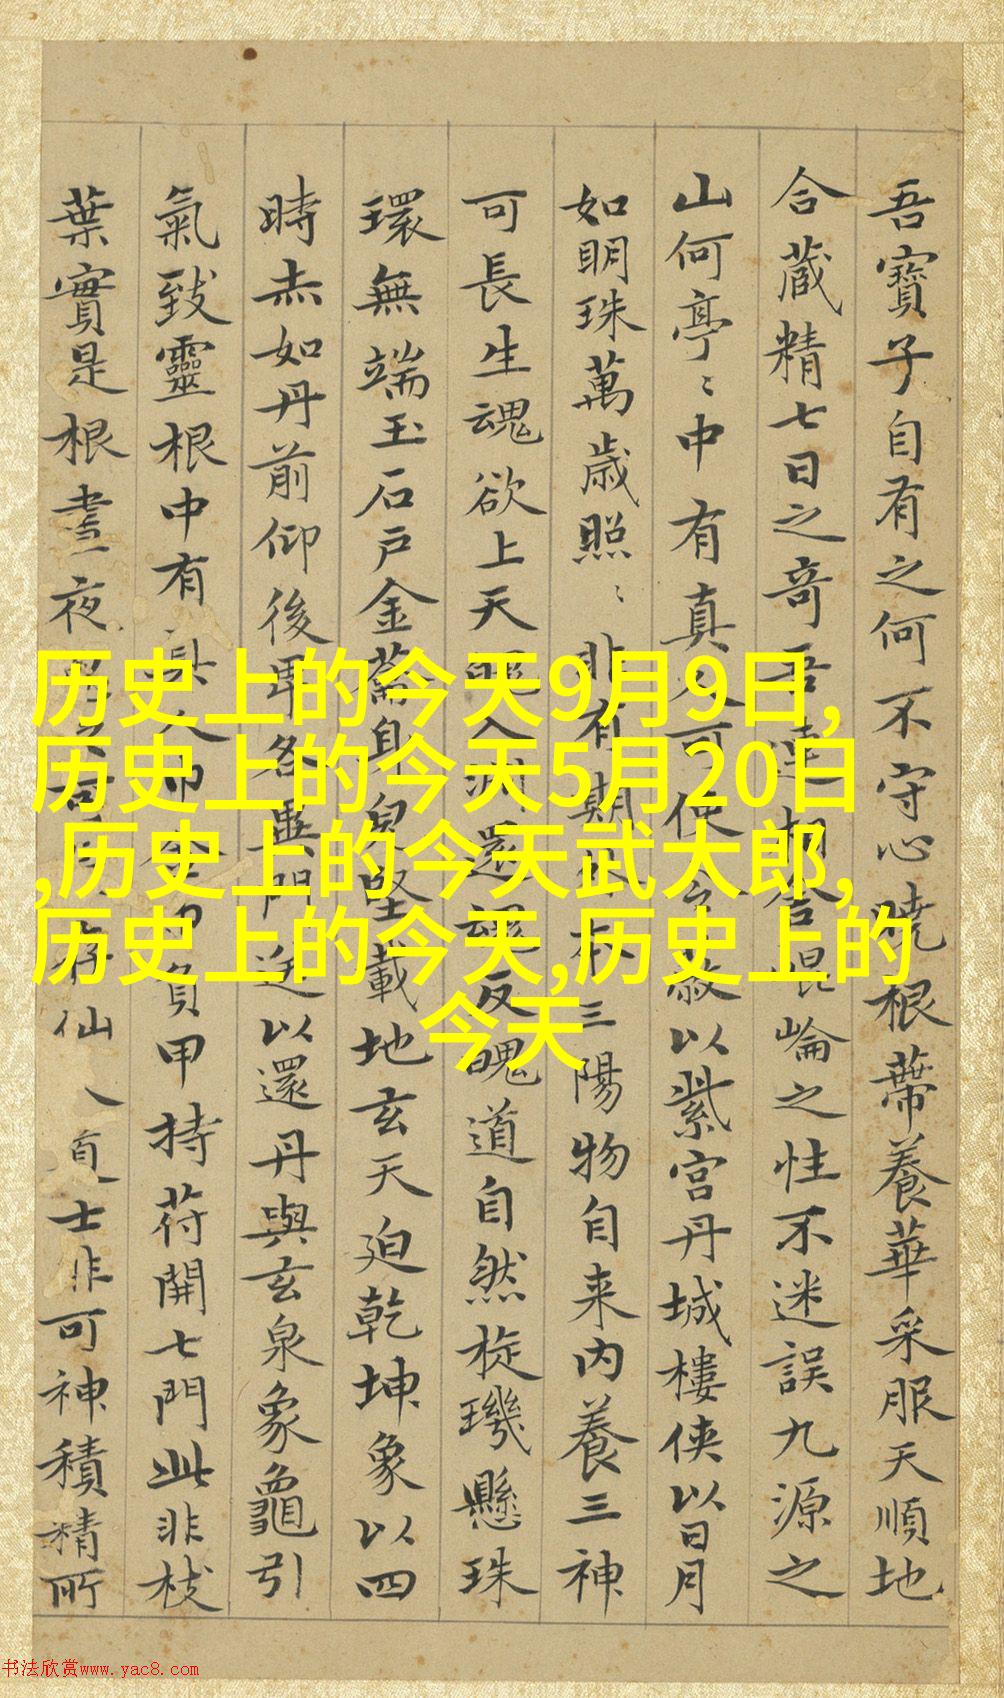 吾寶子自有之何不守心曉根蔕養華采服天順地
合藏精七日之奇吾連相舎崐崘之性不迷誤九源之
山何亭〻中有真人可使令蔽以紫宮丹城樓俠以日月
如明珠萬歲照〻非有期外本三陽物自来内養三神
可長生魂欲上天魄入淵還魂反魄道自然旋璣懸珠
環無端玉石戶金籥身皃堅載地玄天迫乾坤象以四
時赤如丹前仰後卑各異門送以還丹與玄泉象龜引
氣致靈根中有真人巾金巾負甲持苻開七門此非枝
葉實是根晝夜思仙人道士非可神積精所
历史上的今天9月9日,
历史上的今天5月20日
,历史上的今天武大郎,
历史上的今天,历史上的
今天
书法欣赏www.yac8.com